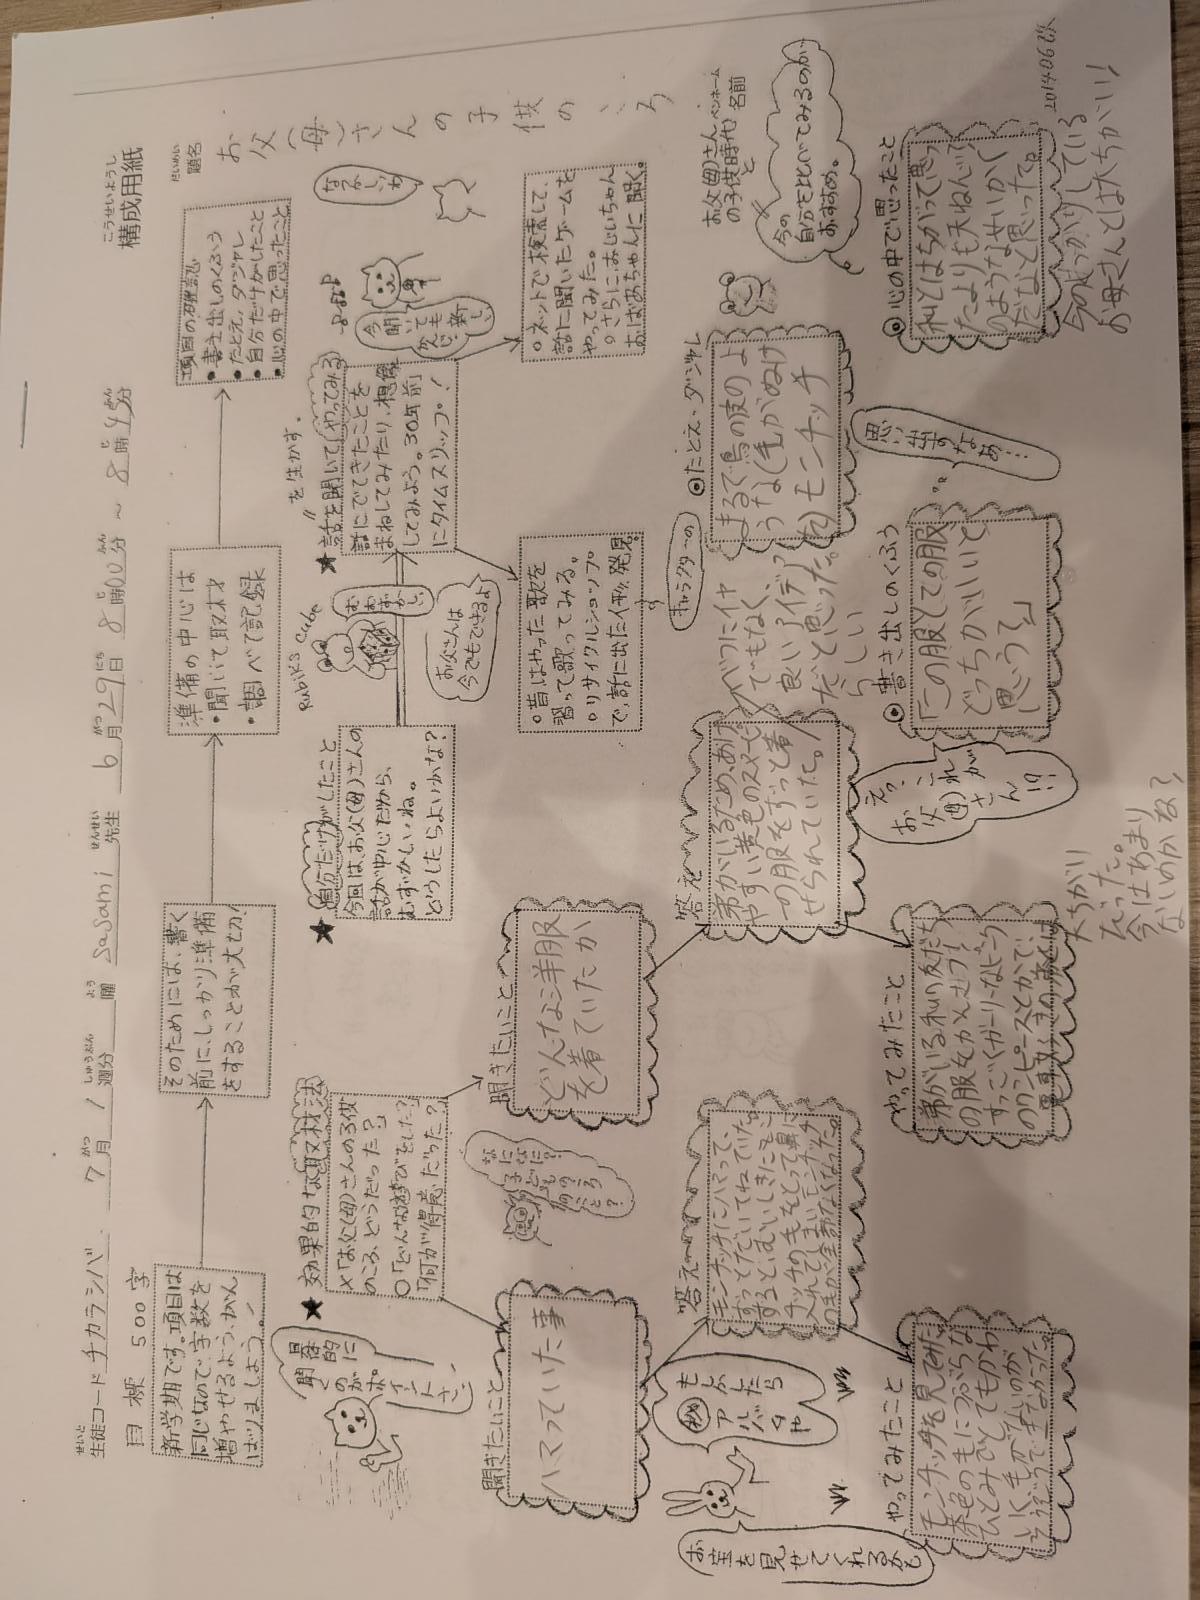 構成用紙
こうせいようし
生徒コード チカラシバ 7月1週分 曜 SaSami 先生 6月29日 8時00分～8時45分
題名 お父(母)さんの子供のころ
目標 500字
新学期です。項目は
同じなので、字数を
増やせるよう、がん
ばりましょう!
そのためには、書く
前に、しっかり準備
をすることが大切!
準備の中心は
・聞いて取材
・調べて記録
項目の確認
・書き出しのくふう
・たとえ、ダジャレ
・自分だけがしたこと
・心の中で思ったこと
★効果的な取材法
×「お父(母)さんの子供
のころ、どうだった?」
○「どんな遊びをした?」
「何が得意だった?」
★自分だけがしたこと
今回は、お父(母)さんの
話が中心だから、
むずかしいね。
どうしたらよいかな?
を生かす。
★話を聞いて(やってみる)
話にでてきたことを
まねしてみたり、想像
してみよう。30年前
にタイムスリップ!
Rubik's Cube
お父さんは
今でもできるよ
今聞い
ても
新し
なつかしいわ
○昔はやった歌を
習って歌ってみる。
○リサイクルショップ
で、話に出た人形、発見。
キャラクターの
○ネットで検索して、
話に聞いたゲームを
やってみた。
○さらに、おじいちゃん
おばあちゃんに聞く。
お父(母)さん
の子供時代
と
ペンネーム
名前
今の
自分を比べてみるのが
おすすめ。
聞きたいこと
ハマっていた事
答え
モンチッチにハマって、
ずっとだいてねていた。
聞きたいこと
どんな洋服
を着ていたか
なになに?
子どもの
ころ
何のこと?
答え
弟がいるため、あげ
やすい黄色のスヌーピー
の服をずっと着
せられていた。
べつにイヤ
でもなく、
良いアイデア
だと思った。
らしい
◎たとえ・ダジャレ
まるで鳥の皮のよ
うな(毛がぬけ
た)モンチッチ
お宝を見せてくれるかも
もしかしたら
アルバムや
やってみたこと
モンチッチを見てみた。
茶色の毛につぶらな
ひとみでとてもかわ
いく、毛がないのが
そうぞうできなかった。
やってみたこと
弟がいる私の友だち
の服をかんさつ!
すっごくガーリーなピンク
のワンピースとかで、
大ちがい
だった。
今はあまり
ないのかな?
えっ!
これが
お父(母)さん!?
◎書き出しのくふう
「この服とての服
どっちがいいと
思うて」
思い出すなあ…
◎心の中で思ったこと
私とはちがって思っ
たよりも天ねんパ
のようなせいかく
だなと思った。
今のしっかりしている
お母さんとは大ちがい!
2014.06改